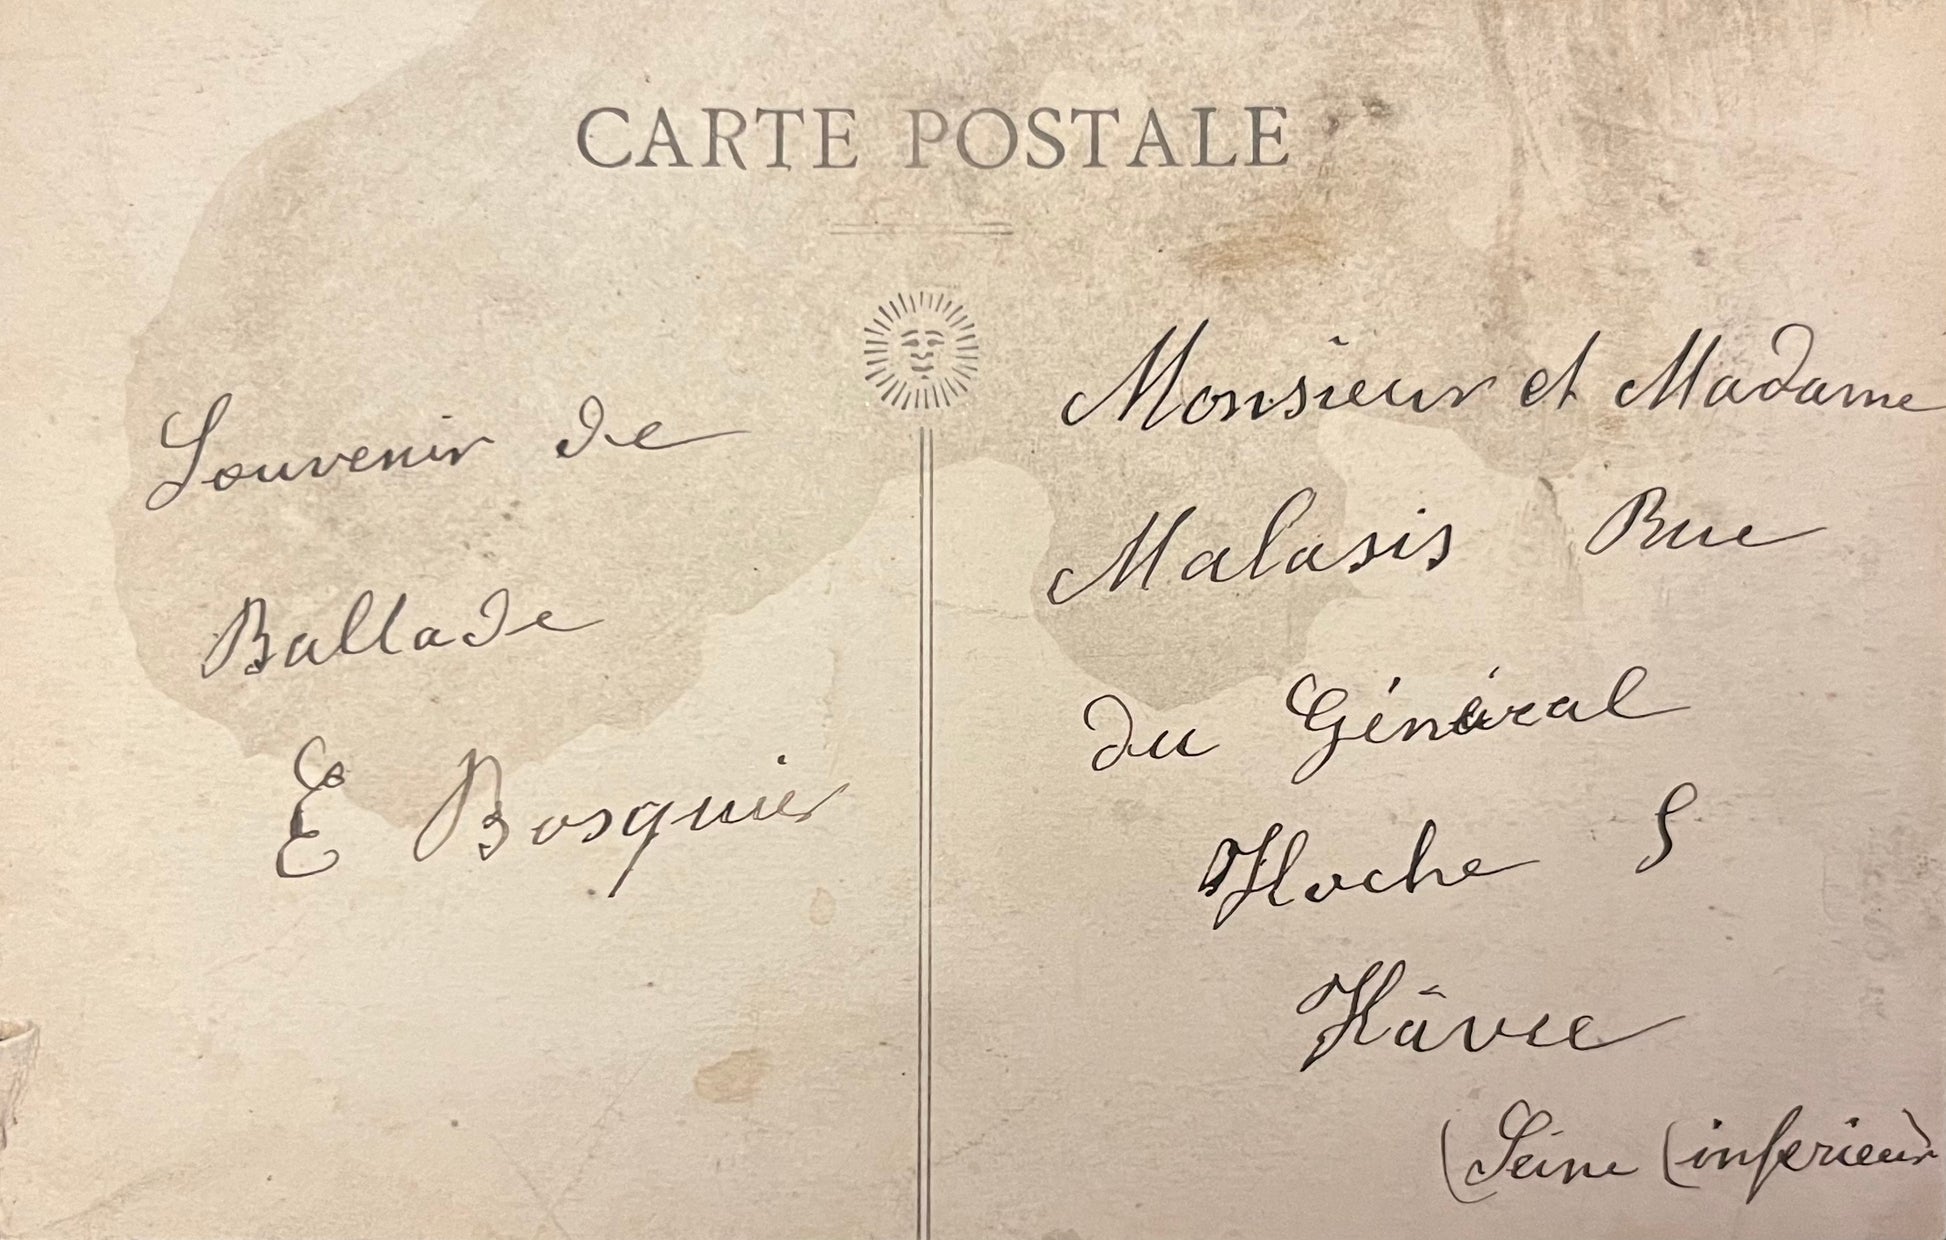 CARTE POSTALE
Souvenir de
Ballade
E Bosquier
Monsieur et Madame
Malasis Rue
du Général
Hoche
Hâvre
(Seine (inferieur)